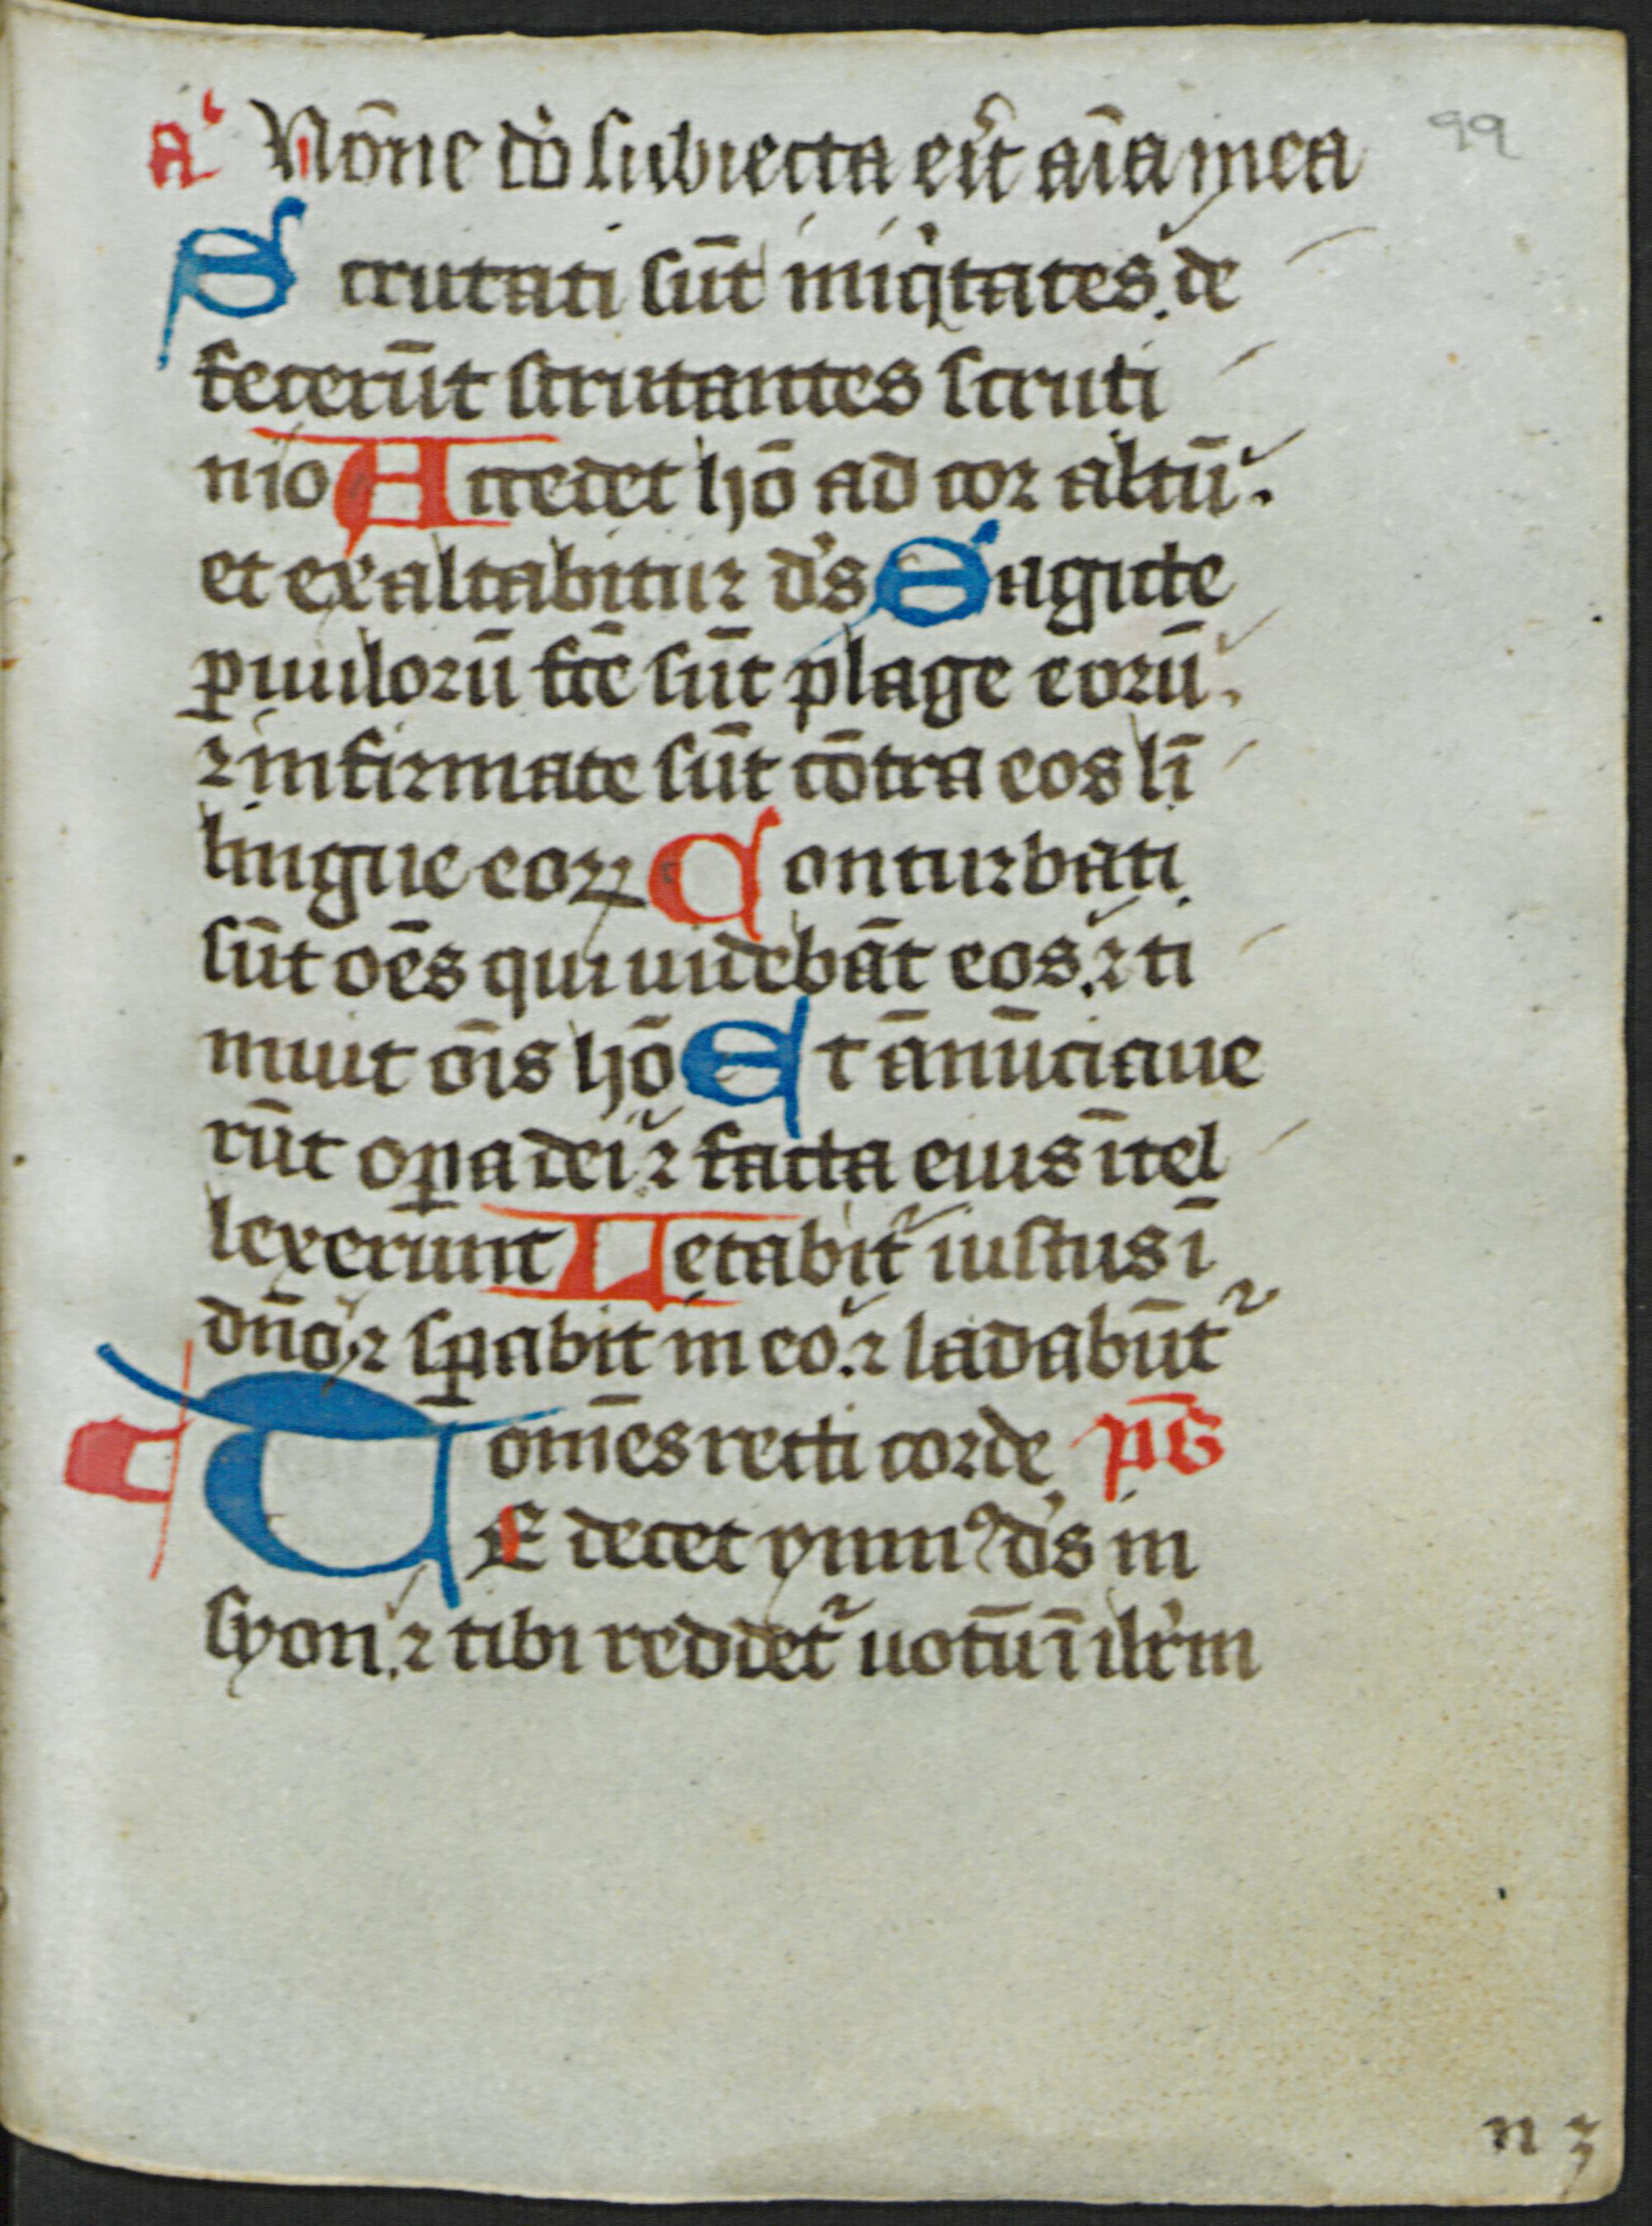 a͑ Nōne dō subiecta erit aīa mea 99
Scrutati sūt iniqͥtates. de
fecerūt scrutantes scruti
nio Accedet hō ad cor altū.
et exaltabitur d's Sagicte
ꝑuulorū fcē sūt plage eorū.
⁊ infirmate sūt cōtra eos lī
lingue eoꝝ Conturbati
sūt oēs qui uidebāt eos. ⁊ ti
muit oīs hō Et ānūciaue
rūt oꝑa dei. ⁊ facta eius ītel
lexerunt Letabit᷑ iustus ī
dn̄o. ⁊ sꝑabit in eo. ⁊ ladabūt᷑
om̄es recti corde pͫs̄
TE decet ymnꝰ d's in
syon. ⁊ tibi reddet᷑ uotū ī ilr̄m
n 3